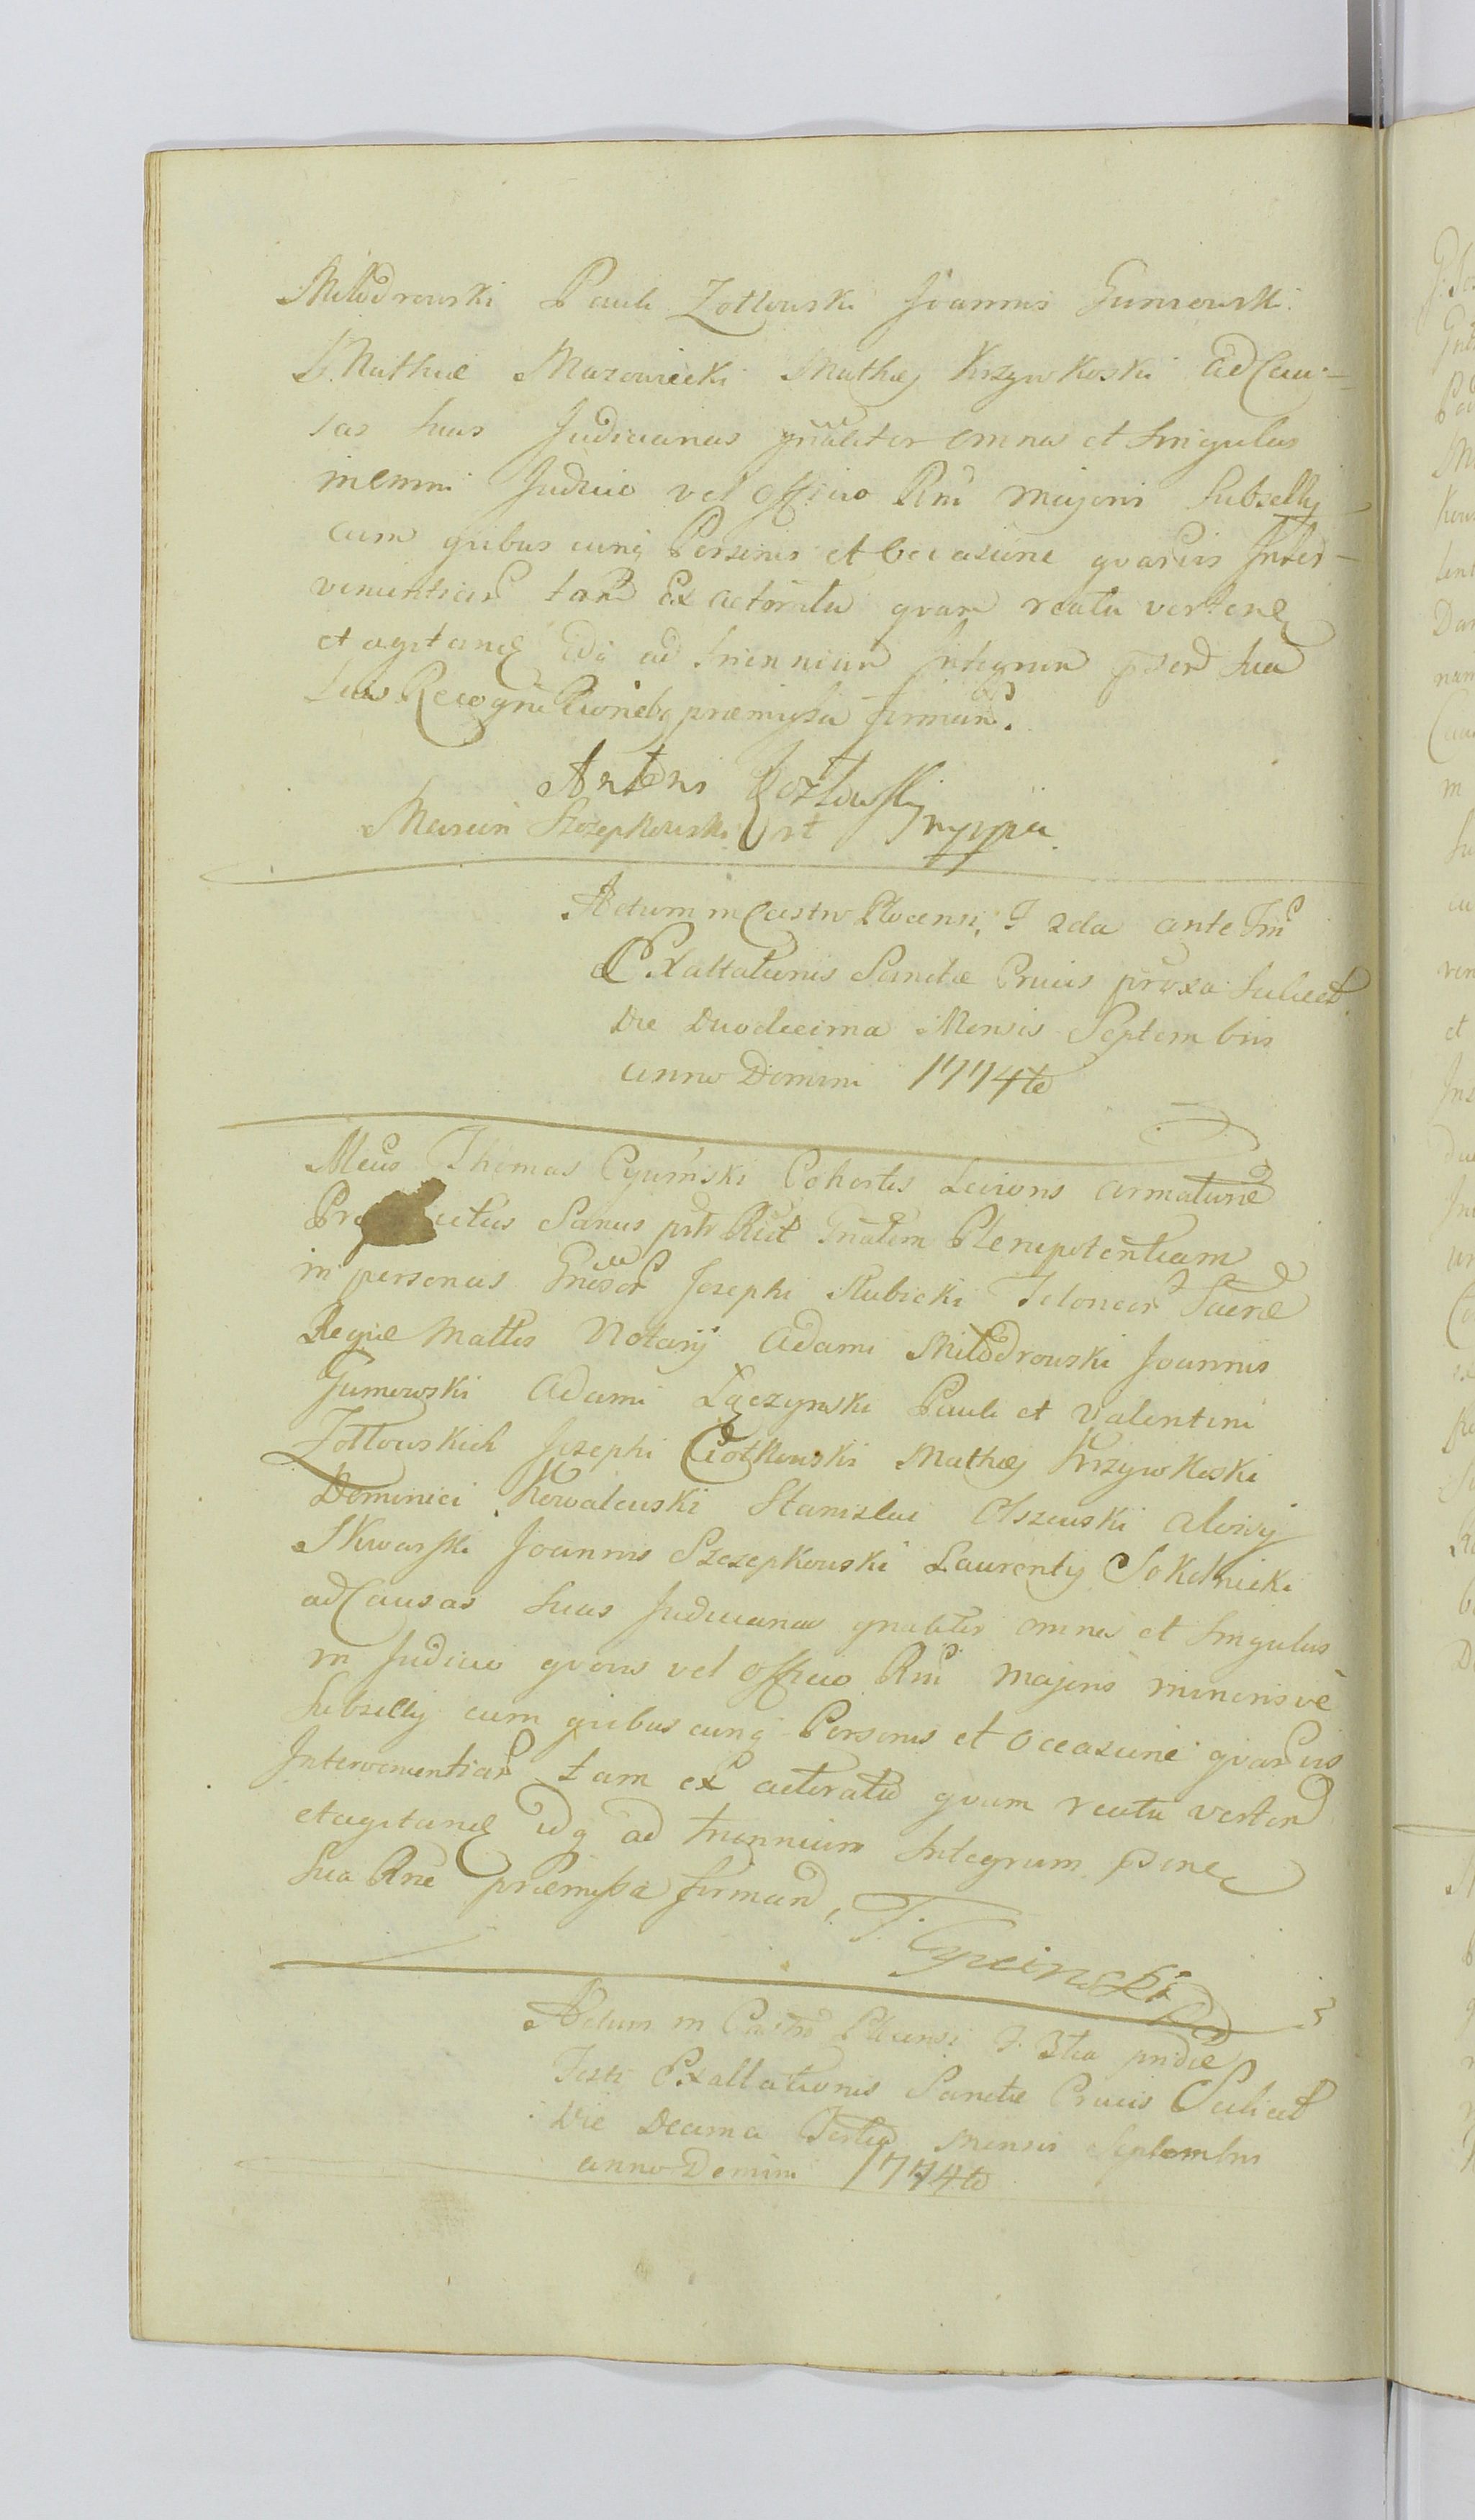 Miłodrowski Pauli Zołtowski Joannis Gumowski
Mathiæ Mazowiecki Mathæj Krzywkoski ad Cau-
sas suas Judiciarias gnaliter omnes et singulas
in omni Judicio vel Officio Rni majoris Subsellij
cum quibus cunq Personis et occasione quarvis Inter-
venientiar tam ex actoratu quam reatu verten
et agitan idq ad triennium Integrum
suis Recognitionebq præmissa firman.
Antoni Kozłowski mppia
Marcin Szczepkowski
Actum in Castro Plocensi, F 2da ante Fm
Exaltationis Sanctæ Crucis proxa Scilicet
Die Duodecima Mensis Septembris
anno Domini 1774to
Mcus Thomas Cypiński Cohortis Levioris armaturæ
Sanus Rlit Gnalem Plenipotentiam
in personas Gnsor Josephi Słubicki Teloneor Sacræ
Regiæ Mattis Notarij Adami Miłodrowski Joannis
Gumowski Adami Łączyński Pauli et Valentini
Zołtowskich Josephi Ciołkowski Mathæj Krzywkoski
Dominici Kowalewski Stanislai Olszewski Alexij
Skwarski Joannis Szczepkowski Laurentij Sokolnicki
ad Causas suas Judiciarias gnaliter omnes et singulas
in Judicio quovis vel officio Rni majoris minorisve
Subsellij cum quibus cunq Personis et occasione quarvis
Intervenientiar tam ex actoratu quam reatu verten
et agitan idq ad triennium Integrum
sua Rne præmissa firman,
T. Cypeinski
Actum in Castro Plocensi F. 3tia pridie
Festi Exaltationis Sanctæ Crucis Scilicet
Die Decima Tertia Mensis Septembris
anno Domini 1774to